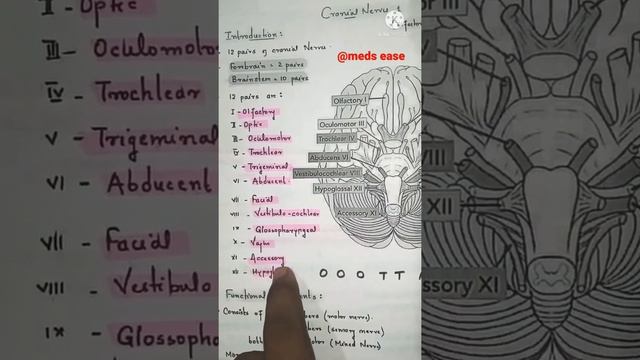 Cranial Nerve
Introduction:
12 pairs of cranial Nerve.
Forebrain = 2 pairs
Brainstem = 10 pairs
12 pairs are:
I - Olfactory
II - Optic
III - Oculomotor
IV - Trochlear
V - Trigeminal
VI - Abducent
VII - Facial
VIII - Vestibulo-cochlear
IX - Glossopharyngeal
X - Vagus
XI - Accessory
XII -
Functional
Consists of
(motor nerve).
(sensory nerve)
(Mixed Nerve)
@meds ease
Olfactory I
Oculomotor III
Trochlear IV
Abducens VI
Vestibulocochlear VIII
Hypoglossal XII
Accessory XI
O O O T T
I - Optic
III - Oculomotor
IV - Trochlear
V - Trigeminal
VI - Abducent
VII - Facial
VIII - Vestibulo
IX - Glossoph
VIII
XII
ssory XI